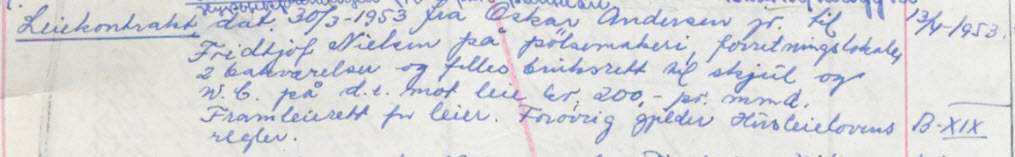 Leiekontrakt, dat. 30/3-1953 fra Oskar Andersen jr. til 13/4-1953.
Fridtjof Nielsen på pölsemakeri, forretningslokale,
2 bakværelser og felles bruksrett til skjul og
W.C. på d.e. mot leie kr. 200,- pr. mnd.
Framleierett for leier. Forövrig gjelder Husleielovens B-XIX
regler.